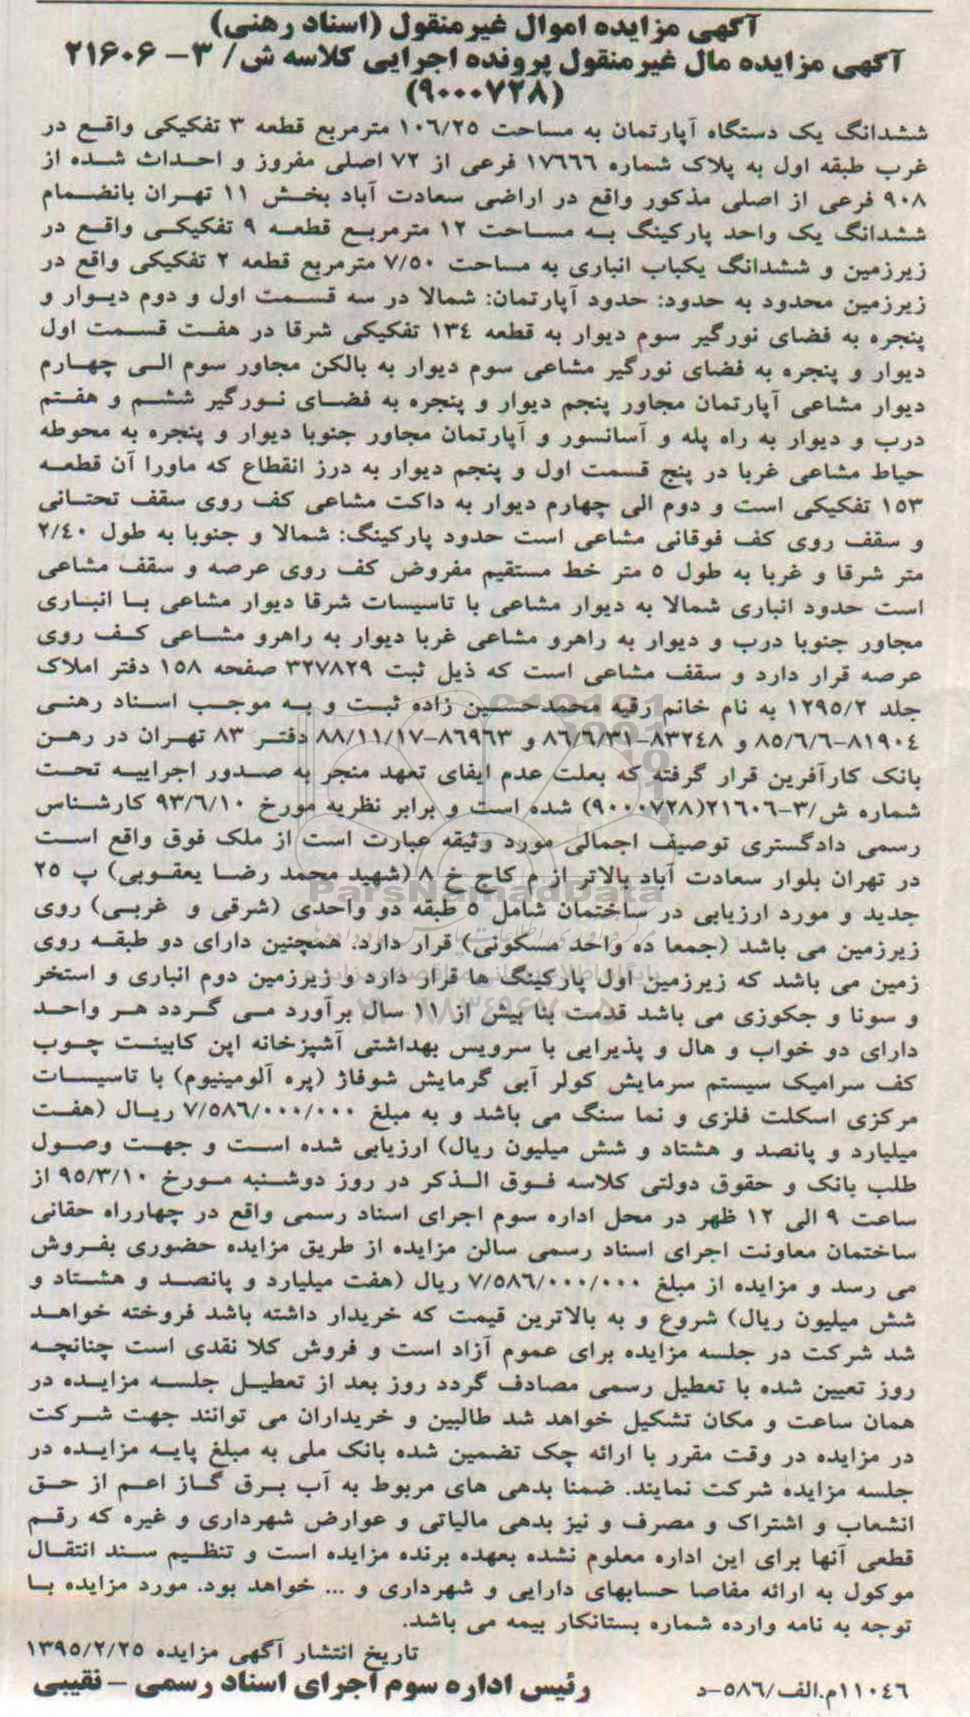 آگهی مزایده اموال غیرمنقول (اسناد رهنی)
آگهی مزایده مال غیرمنقول پرونده اجرایی کلاسه ش/ ۳- ۲۱۶۰۶
(۹۰۰۰۷۲۸)
ششدانگ یک دستگاه آپارتمان به مساحت ۱۰۶/۲۵ مترمربع قطعه ۳ تفکیکی واقع در
غرب طبقه اول به پلاک شماره ۱۷۶۶۶ فرعی از ۷۲ اصلی مفروز و احداث شده از
۹۰۸ فرعی از اصلی مذکور واقع در اراضی سعادت آباد بخش ۱۱ تهران بانضمام
ششدانگ یک واحد پارکینگ به مساحت ۱۲ مترمربع قطعه ۹ تفکیکی واقع در
زیرزمین و ششدانگ یکباب انباری به مساحت ۷/۵۰ مترمربع قطعه ۲ تفکیکی واقع در
زیرزمین محدود به حدود: حدود آپارتمان: شمالا در سه قسمت اول و دوم دیوار و
پنجره به فضای نورگیر سوم دیوار به قطعه ۱۳۴ تفکیکی شرقا در هفت قسمت اول
دیوار و پنجره به فضای نورگیر مشاعی سوم دیوار به بالکن مجاور سوم الی چهارم
دیوار مشاعی آپارتمان مجاور پنجم دیوار و پنجره به فضای نورگیر ششم و هفتم
درب و دیوار به راه پله و آسانسور و آپارتمان مجاور جنوبا دیوار و پنجره به محوطه
حیاط مشاعی غربا در پنج قسمت اول و پنجم دیوار به درز انقطاع که ماورا آن قطعه
۱۵۳ تفکیکی است و دوم الی چهارم دیوار به داکت مشاعی کف روی سقف تحتانی
و سقف روی کف فوقانی مشاعی است حدود پارکینگ: شمالا و جنوبا به طول ۲/۴۰
متر شرقا و غربا به طول ۵ متر خط مستقیم مفروض کف روی عرصه و سقف مشاعی
است حدود انباری شمالا به دیوار مشاعی با تاسیسات شرقا دیوار مشاعی با انباری
مجاور جنوبا درب و دیوار به راهرو مشاعی غربا دیوار به راهرو مشاعی کف روی
عرصه قرار دارد و سقف مشاعی است که ذیل ثبت ۳۲۷۸۲۹ صفحه ۱۵۸ دفتر املاک
جلد ۱۲۹۵/۲ به نام خانم رقیه محمدحسین زاده ثبت و به موجب اسناد رهنی
۸۱۹۰۴-۸۵/۶/۶ و ۸۳۲۴۸-۸۶/۶/۳۱ و ۸۶۹۶۳-۸۸/۱۱/۱۷ دفتر ۸۳ تهران در رهن
بانک کارآفرین قرار گرفته که بعلت عدم ایفای تعهد منجر به صدور اجراییه تحت
شماره ش/۳-۲۱۶۰۶(۹۰۰۰۷۲۸) شده است و برابر نظریه مورخ ۹۳/۶/۱۰ کارشناس
رسمی دادگستری توصیف اجمالی مورد وثیقه عبارت است از ملک فوق واقع است
در تهران بلوار سعادت آباد بالاتر از م کاج خ ۸ (شهید محمد رضا یعقوبی) پ ۲۵
جدید و مورد ارزیابی در ساختمان شامل ۵ طبقه دو واحدی (شرقی و غربی) روی
زیرزمین می باشد (جمعا ده واحد مسکونی) قرار دارد. همچنین دارای دو طبقه روی
زمین می باشد که زیرزمین اول پارکینگ ها قرار دارد و زیرزمین دوم انباری و استخر
و سونا و جکوزی می باشد قدمت بنا بیش از ۱۱ سال برآورد می گردد هر واحد
دارای دو خواب و هال و پذیرایی با سرویس بهداشتی آشپزخانه اپن کابینت چوب
کف سرامیک سیستم سرمایش کولر آبی گرمایش شوفاژ (پره آلومینیوم) با تاسیسات
مرکزی اسکلت فلزی و نما سنگ می باشد و به مبلغ ۷/۵۸۶/۰۰۰/۰۰۰ ریال (هفت
میلیارد و پانصد و هشتاد و شش میلیون ریال) ارزیابی شده است و جهت وصول
طلب بانک و حقوق دولتی کلاسه فوق الذکر در روز دوشنبه مورخ ۹۵/۳/۱۰ از
ساعت ۹ الی ۱۲ ظهر در محل اداره سوم اجرای اسناد رسمی واقع در چهارراه حقانی
ساختمان معاونت اجرای اسناد رسمی سالن مزایده از طریق مزایده حضوری بفروش
می رسد و مزایده از مبلغ ۷/۵۸۶/۰۰۰/۰۰۰ ریال (هفت میلیارد و پانصد و هشتاد و
شش میلیون ریال) شروع و به بالاترین قیمت که خریدار داشته باشد فروخته خواهد
شد شرکت در جلسه مزایده برای عموم آزاد است و فروش کلا نقدی است چنانچه
روز تعیین شده با تعطیل رسمی مصادف گردد روز بعد از تعطیل جلسه مزایده در
همان ساعت و مکان تشکیل خواهد شد طالبین و خریداران می توانند جهت شرکت
در مزایده در وقت مقرر با ارائه چک تضمین شده بانک ملی به مبلغ پایه مزایده در
جلسه مزایده شرکت نمایند. ضمنا بدهی های مربوط به آب برق گاز اعم از حق
انشعاب و اشتراک و مصرف و نیز بدهی مالیاتی و عوارض شهرداری و غیره که رقم
قطعی آنها برای این اداره معلوم نشده بعهده برنده مزایده است و تنظیم سند انتقال
موکول به ارائه مفاصا حسابهای دارایی و شهرداری و ... خواهد بود. مورد مزایده با
توجه به نامه وارده شماره بستانکار بیمه می باشد.
تاریخ انتشار آگهی مزایده ۱۳۹۵/۲/۲۵
رئیس اداره سوم اجرای اسناد رسمی - نقیبی
۱۱۰۴۶م.الف/۵۸۶-د
ParsNamadData